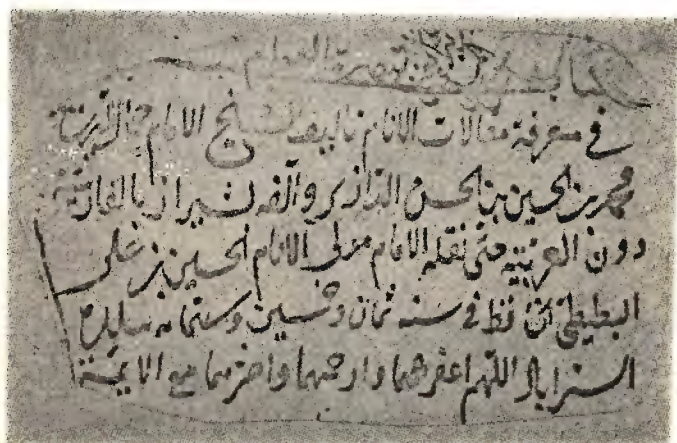 تبصرة العوام
في معرفة مقالات الانام تاليف الشيخ الامام جمال الدين
محمد بن الحسين بن الحسن الرازي والفه بشيراز بالفارسية
دون العربية حتى نقله الامام مولى الامام الحسين بن علي
البطيطي في سنه ثمان وخمسين وستمائه
اللهم اغفر لهما وارحمهما واحشرهما مع الايمة